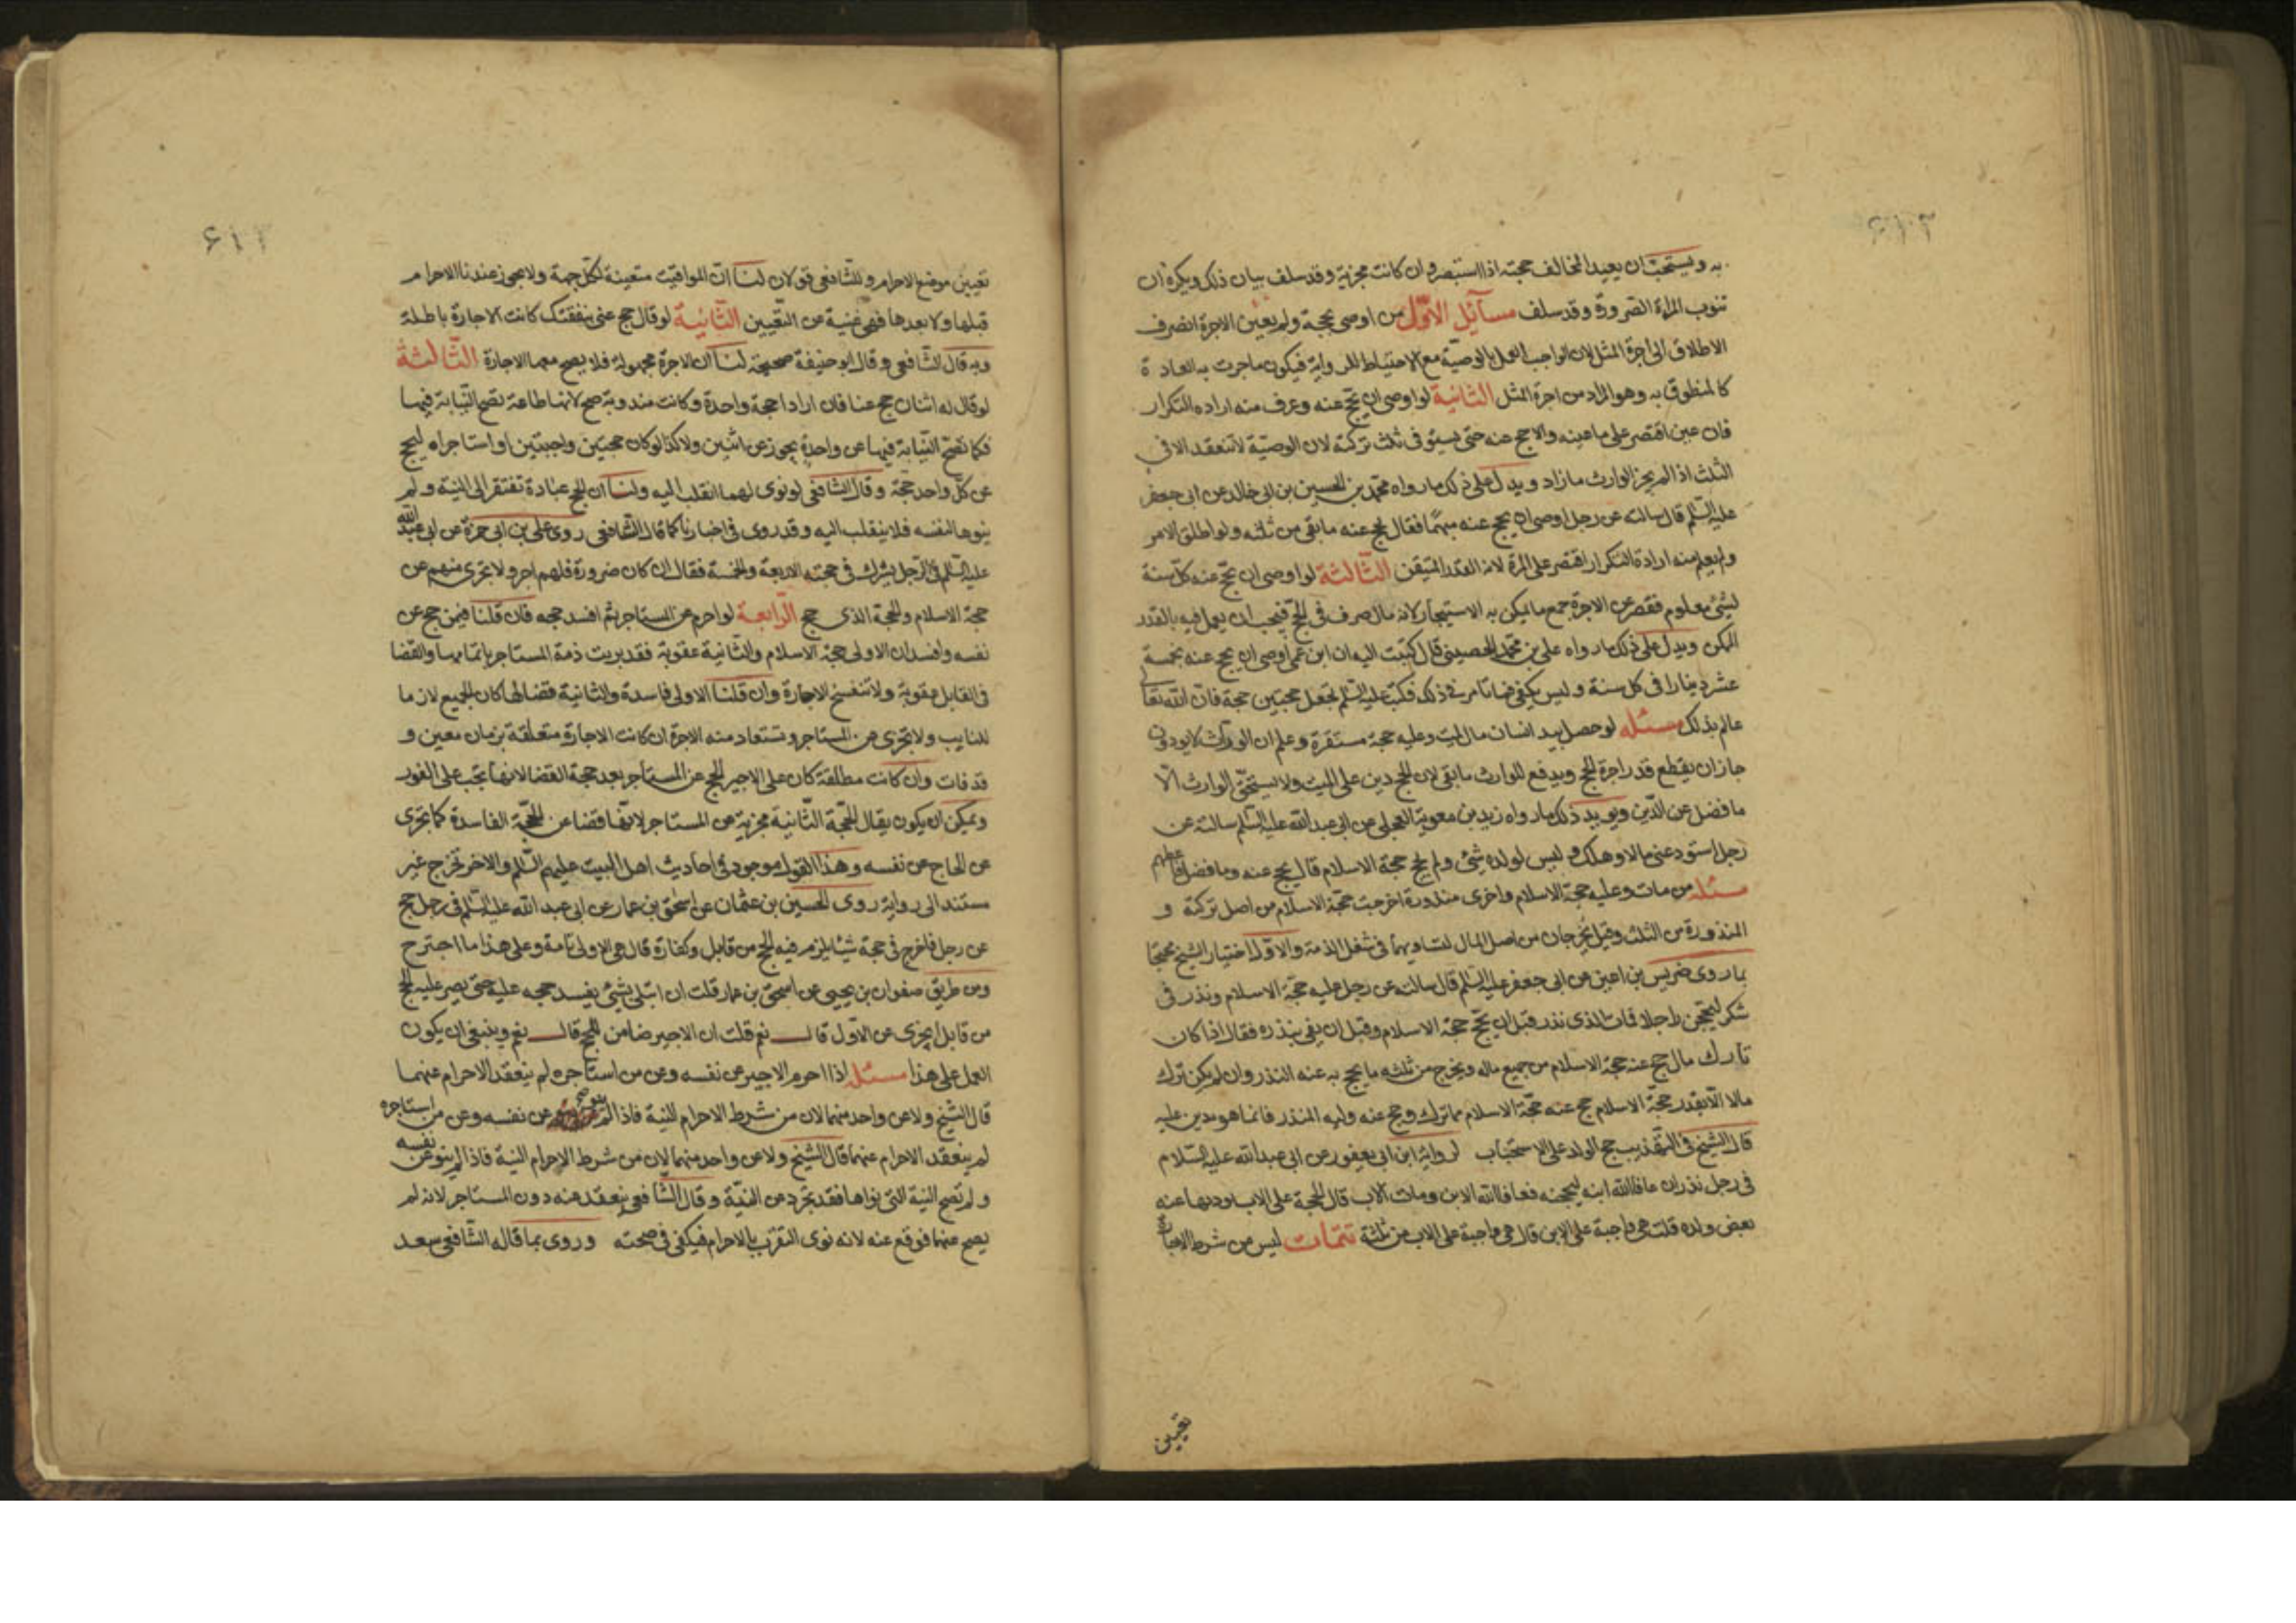 به ويستحبّ ان يعيد المخالف حجته اذا استبصر وان كانت مجزية وقد سلف بيان ذلك ويكره ان
تنوب المراة الصرورة وقد سلف مسآئل الاوّل من اوصى بحجة ولم يعيّن الاجرة انصرف
الاطلاق الى اجرة المثل لان الواجب العمل بالوصيّة مع الاحتياط للرواية فيكون ماجرت به العادة
كالمنطوق به وهو المراد من اجرة المثل الثانية لو اوصى ان يحج عنه وعرف منه اراده التكرار
فان عين اقتصر على ما عينه والا حج عنه حتى يستوفى ثلث تركته لان الوصيّة لا تنعقد الا فى
الثلث اذا لم يجز الوارث ما زاد ويدل على ذلك ما رواه محمد بن الحسين بن ابى خالد عن ابى جعفر
عليه السّلم قال سالته عن رجل اوصى ان يحج عنه مبهمًا فقال يحج عنه ما بقى من ثلثه ولو اطلق الامر
ولم يعلم منه ارادة التكرار اقتصر على المرة لانه القدر المتيقن الثّالثة لو اوصى ان يحج عنه كلّ سنة
بشئ معلوم فقصر عن الاجرة جمع ما يمكن به الاستيجار لانه مال صرف فى الحجّ فيجب ان يعمل فيه بالقدر
الممكن ويدل على ذلك ما رواه على بن محمّد الحصينى قال كتبت اليه ان ابن عمى اوصى ان يحج عنه بخمسة
عشر دينارا فى كل سنة وليس يكفى فما تامر فى ذلك فكتب عليه السّلم تجعل حجتين حجة فانّ الله تعا
عالم بذلك مسئله لو حصل بيد انسان مال لميت وعليه حجة مستقرة وعلم ان الورّاث لا يودون
جاز ان يقتطع قدر اجرة الحج ويدفع للوارث ما بقى لان الحج دين على الميت ولا يستحقّ الوارث الّا
ما فضل عن الدّين ويويد ذلك ما رواه زيد بن معوية العجلى عن ابى عبدالله عليه السّلم سالته عن
رجل استودعنى مالا وهلك وليس لولده شئ ولم يحج حجة الاسلام قال يحج عنه وما فضل فاعطهم
مسئله من مات وعليه حجة الاسلام واخرى منذورة اخرجت حجّة الاسلام من اصل تركته و
المنذورة من الثلث وقيل يخرجان من اصل المال لتساويهما فى شغل الذمة والاوّل اختيار الشيخ محتجا
بما روى ضريس بن اعين عن ابى جعفر عليه السّلم قال سالته عن رجل عليه حجّة الاسلام ونذر فى
شكر ليحجن رجلا فمات الذى نذر قبل ان يحجّ حجّة الاسلام وقبل ان يفى بنذره فقال اذا كان
تارك مال حج عنه حجة الاسلام من جميع ماله ويخرج من ثلثه ما يحج به عنه النذر وان لم يكن ترك
مالا الّا بقدر حجّة الاسلام حج عنه حجّة الاسلام مما ترك وحج عنه وليه المنذر فانما هو دين عليه
قال الشيخ فى التّهذيب حج الولد على الاستحباب لرواية ابن ابى يعفور عن ابى عبدالله عليه السّلام
فى رجل نذر ان عافا الله ابنه ليحجنه فعافا الله الابن ومات الاب قال الحجة على الاب يوديها عنه
بعض ولده قلت هى واجبة على الابن قال هى واجبة على الاب من ثلثه تتمّات ليس من شرط الاجارة
تعيين
تعيين موضع الاحرام وللشافعى قولان لنا انّ المواقيت متعينة لكلّ جهة ولا يجوز عندنا الاحرام
قبلها ولا بعدها فهى غنية عن التعّيين الثّانية لو قال حج عنى بنفقتك كانت الاجارة باطلة
وبه قال الشّافعى وقال ابو حنيفة صحيحة لنا ان الاجرة مجهولة فلا يصح معها الاجارة الثّالثة
لو قال له اثنان حج عنا فان ارادا حجة واحدة وكانت مندوبة صح لانها طاعة تصح النّيابة فيها
فكما تصح النّيابة فيها عن واحد يجوز عن اثنين ولا كذا لو كان حجتين واجبتين او استاجراه ليحج
عن كلّ واحد حجّة وقال الشافعى لو نوى لهما انقلب اليه ولنا ان الحج عبادة تفتقر الى النية ولم
ينوها لنفسه فلا ينقلب اليه وقد روى فى اخبارنا كما قال الشّافعى روى على بن ابى حمزة عن ابى عبد الله
عليه السّلم فى الرّجل يشرك فى حجته الاربعة والخمسة فقال ان كان صرورة فلهم اجر ولا يجزى منهم عن
حجة الاسلام والحجة الذى حج الرّابعة لو احرم عن المستاجر ثم افسد حجه فان قلنا فيمن حج عن
نفسه وافسد ان الاولى حجة الاسلام والثّانية عقوبة فقد بريت ذمة المستاجر باتمامها والقضا
فى القابل عقوبة ولا تنفسخ الاجارة وان قلنا الاولى فاسدة والثانية قضا لها كان الجميع لازما
للنايب ولا يجزى عن المستاجر وتستعاد منه الاجرة ان كانت الاجارة متعلقة بزمان معين و
قد فات وان كانت مطلقة كان على الاجير الحج عن المستاجر بعد حجة القضا لانها تجب على الفور
ويمكن ان يكون يقال الحجّة الثّانية مجزية عن المستاجر لانّها قضا عن الحجّة الفاسدة كما يجزى
عن الحاج عن نفسه وهذا القول موجود فى احاديث اهل البيت عليهم السّلم والاخر تخرج غير
مستند الى رواية روى الحسين بن عثمان عن اسحق بن عمار عن ابى عبد الله عليه السّلم فى رجل حج
عن رجل فاخرج فى حجة شيئا يلزمه فيه الحج من قابل وكفارة قال هى الاولى تامة وعلى هذا ما اجترح
ومن طريق صفوان بن يحيى عن اسحق بن عمار قلت ان ابتلى بشئ يفسد حجه عليه حتى يصير عليه الحج
من قابل ايجزى عن الاوّل قال نعم قلت ان الاجير ضامن للحج قال نعم وينبغى ان يكون
العمل على هذا مسئله اذا احرم الاجير عن نفسه وعن من استاجره لم ينعقد الاحرام عنهما
قال الشيخ ولا عن واحد منهما لان من شرط الاحرام النية فاذا لم ينو عن نفسه وعن من استاجره
لم ينعقد الاحرام عنهما قال الشيخ ولا عن واحد منهما لان من شرط الاحرام النية فاذا لم ينو عن نفسه
ولم تصح النية التى نواها فقد تجرد عن النيّة وقال الشّافعى ينعقد عنه دون المستاجر لانه لم
يصح عنهما فوقع عنه لانه نوى التقرّب بالاحرام فيكفى فى صحته وروى بما قاله الشّافعى سعد